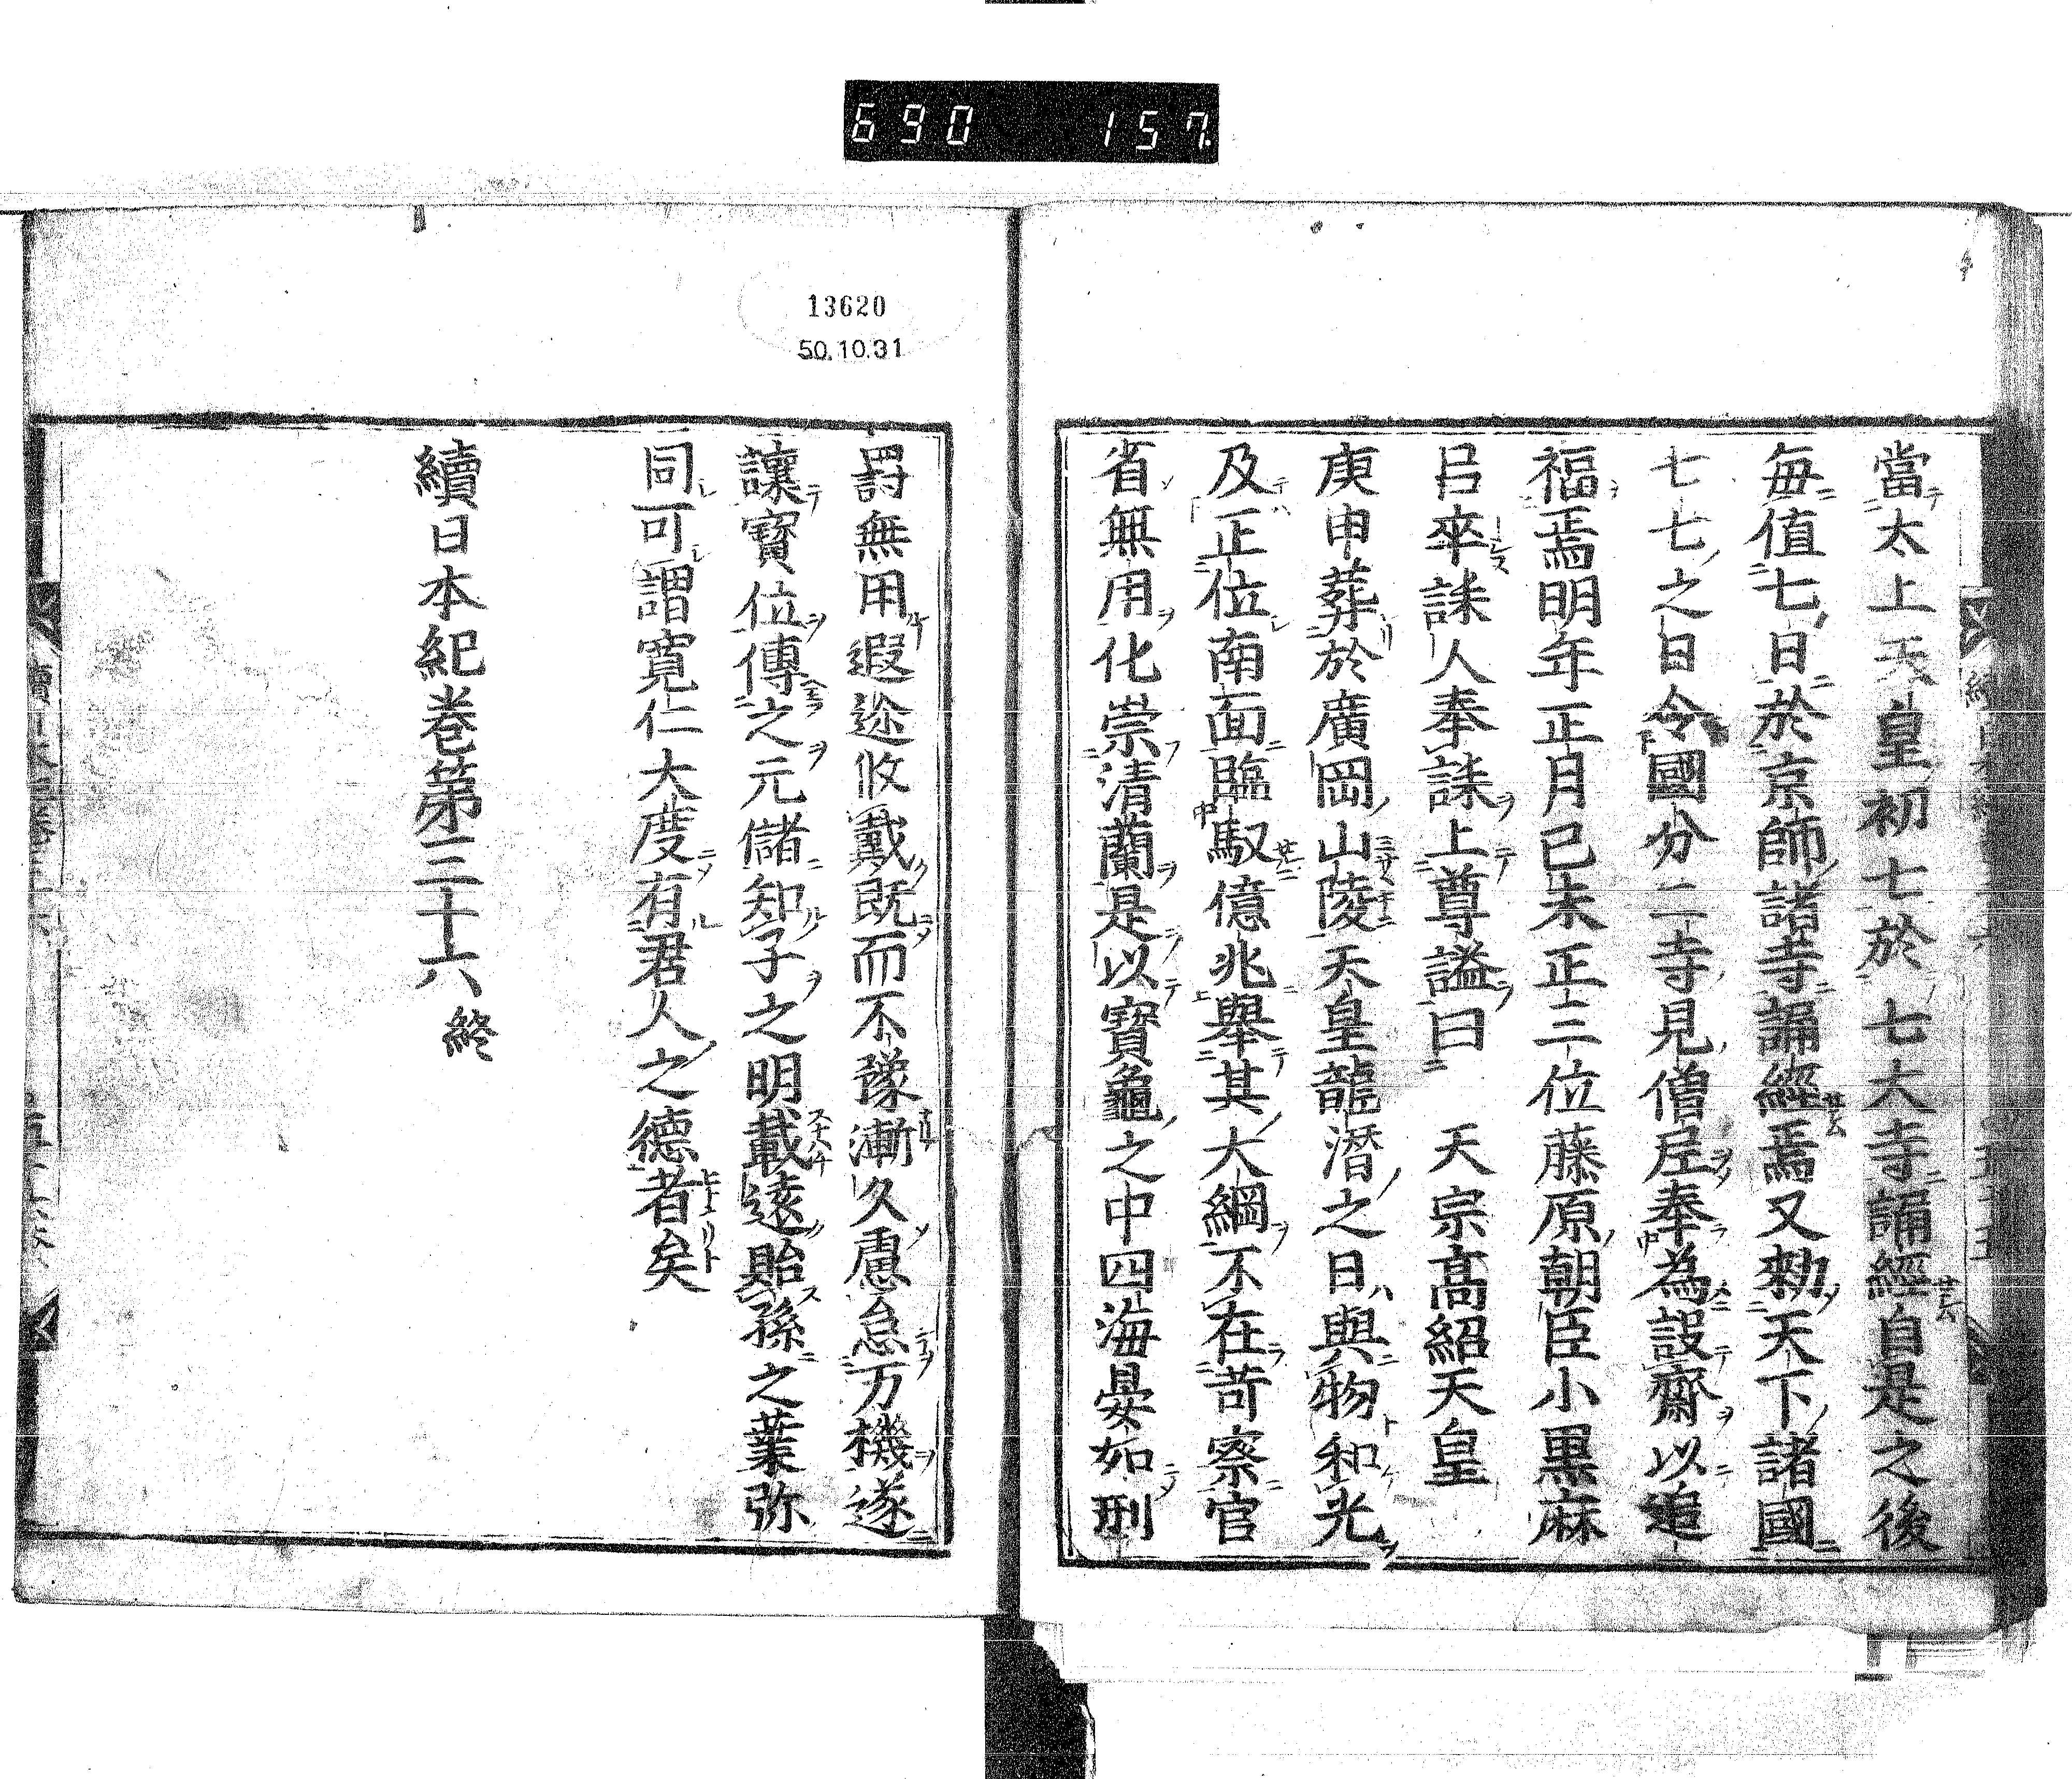 690 157
13620
50.10.31
當太上天皇初七於七大寺誦經自是之後
毎値七日於京師諸寺誦經焉又勑天下諸國
七七之日令國分二寺見僧尼奉為設齋以追
福焉明年正月己未正三位藤原朝臣小黒麻
呂率誄人奉誄上尊謚曰 天宗髙紹天皇
庚申葬於廣岡山陵天皇龍潜之日與物和光
及正位南面臨馭億兆舉其大綱不在苛察官
省無用化崇清蘭是以寳龜之中四海晏如刑
罸無用遐迩攸戴既而不豫漸久慮怠万機遂
讓寳位傳之元儲知子之明載遠貽孫之業弥
同可謂寛仁大度有君人之德者矣
續日本紀巻第三十六終